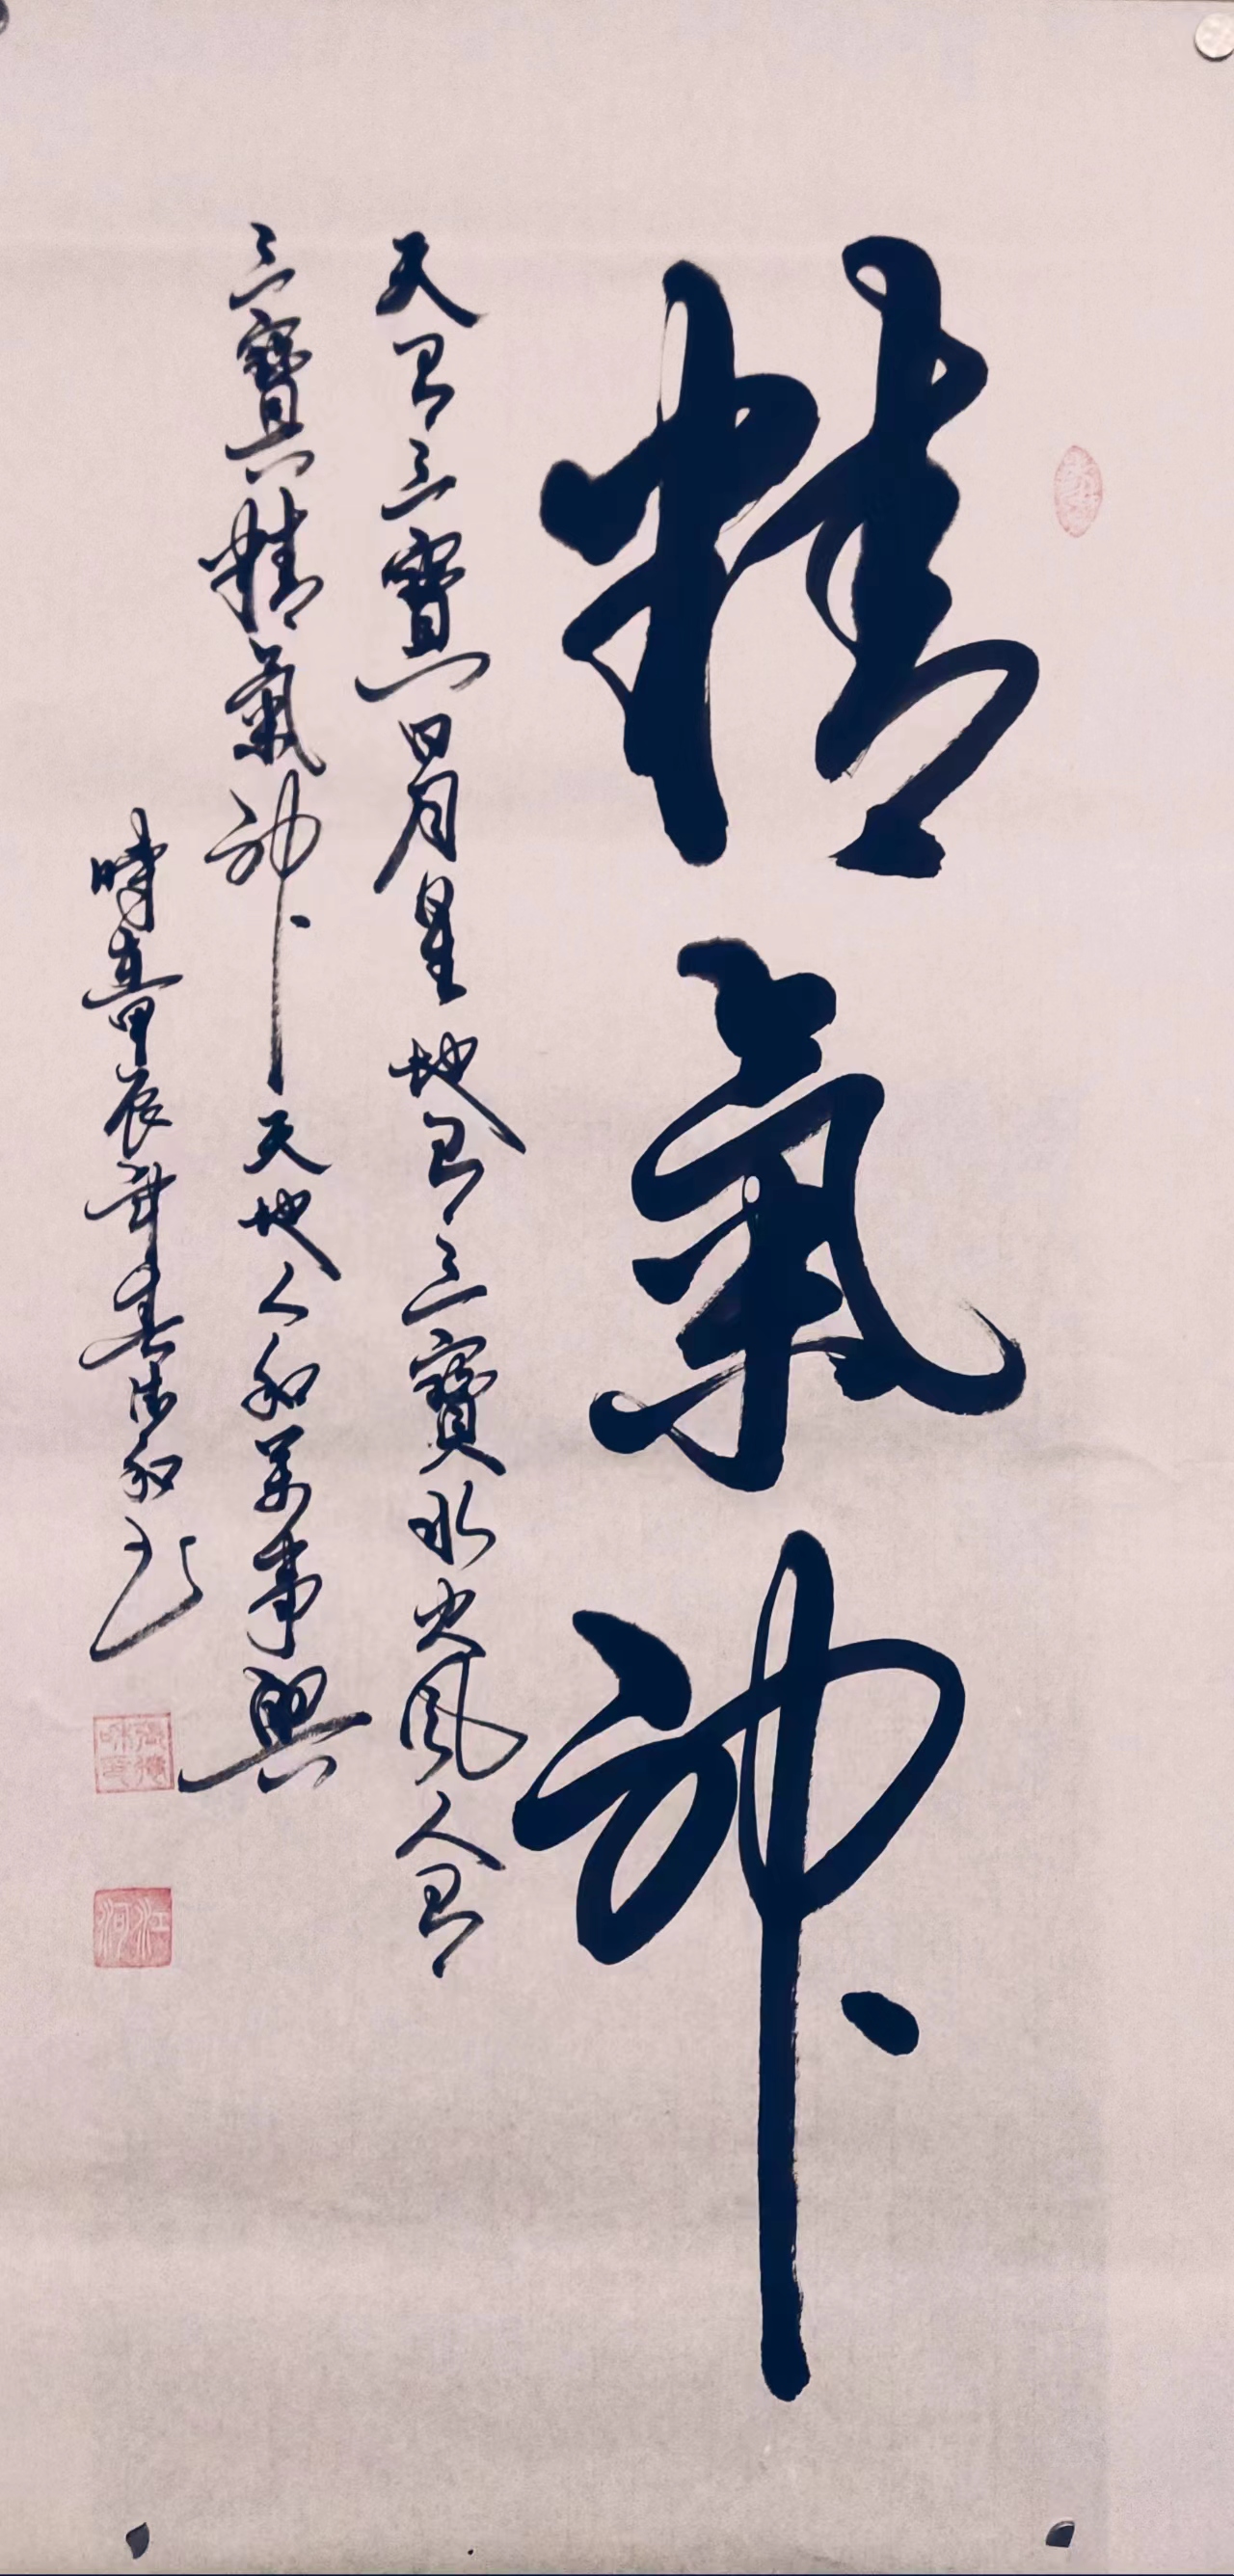 精氣神
天有三寶日月星地有三寶水火風人有
三寶精氣神天地人和萬事興
時在甲辰年春
江河